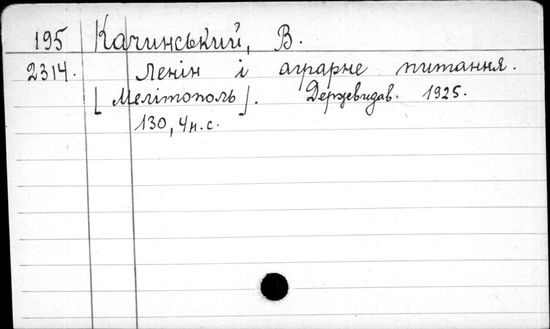 195 Качинський, В.
2314. Ленін і аграрне питання.
[Мелітополь]. Держвидав. 1925.
130, 4н.с.